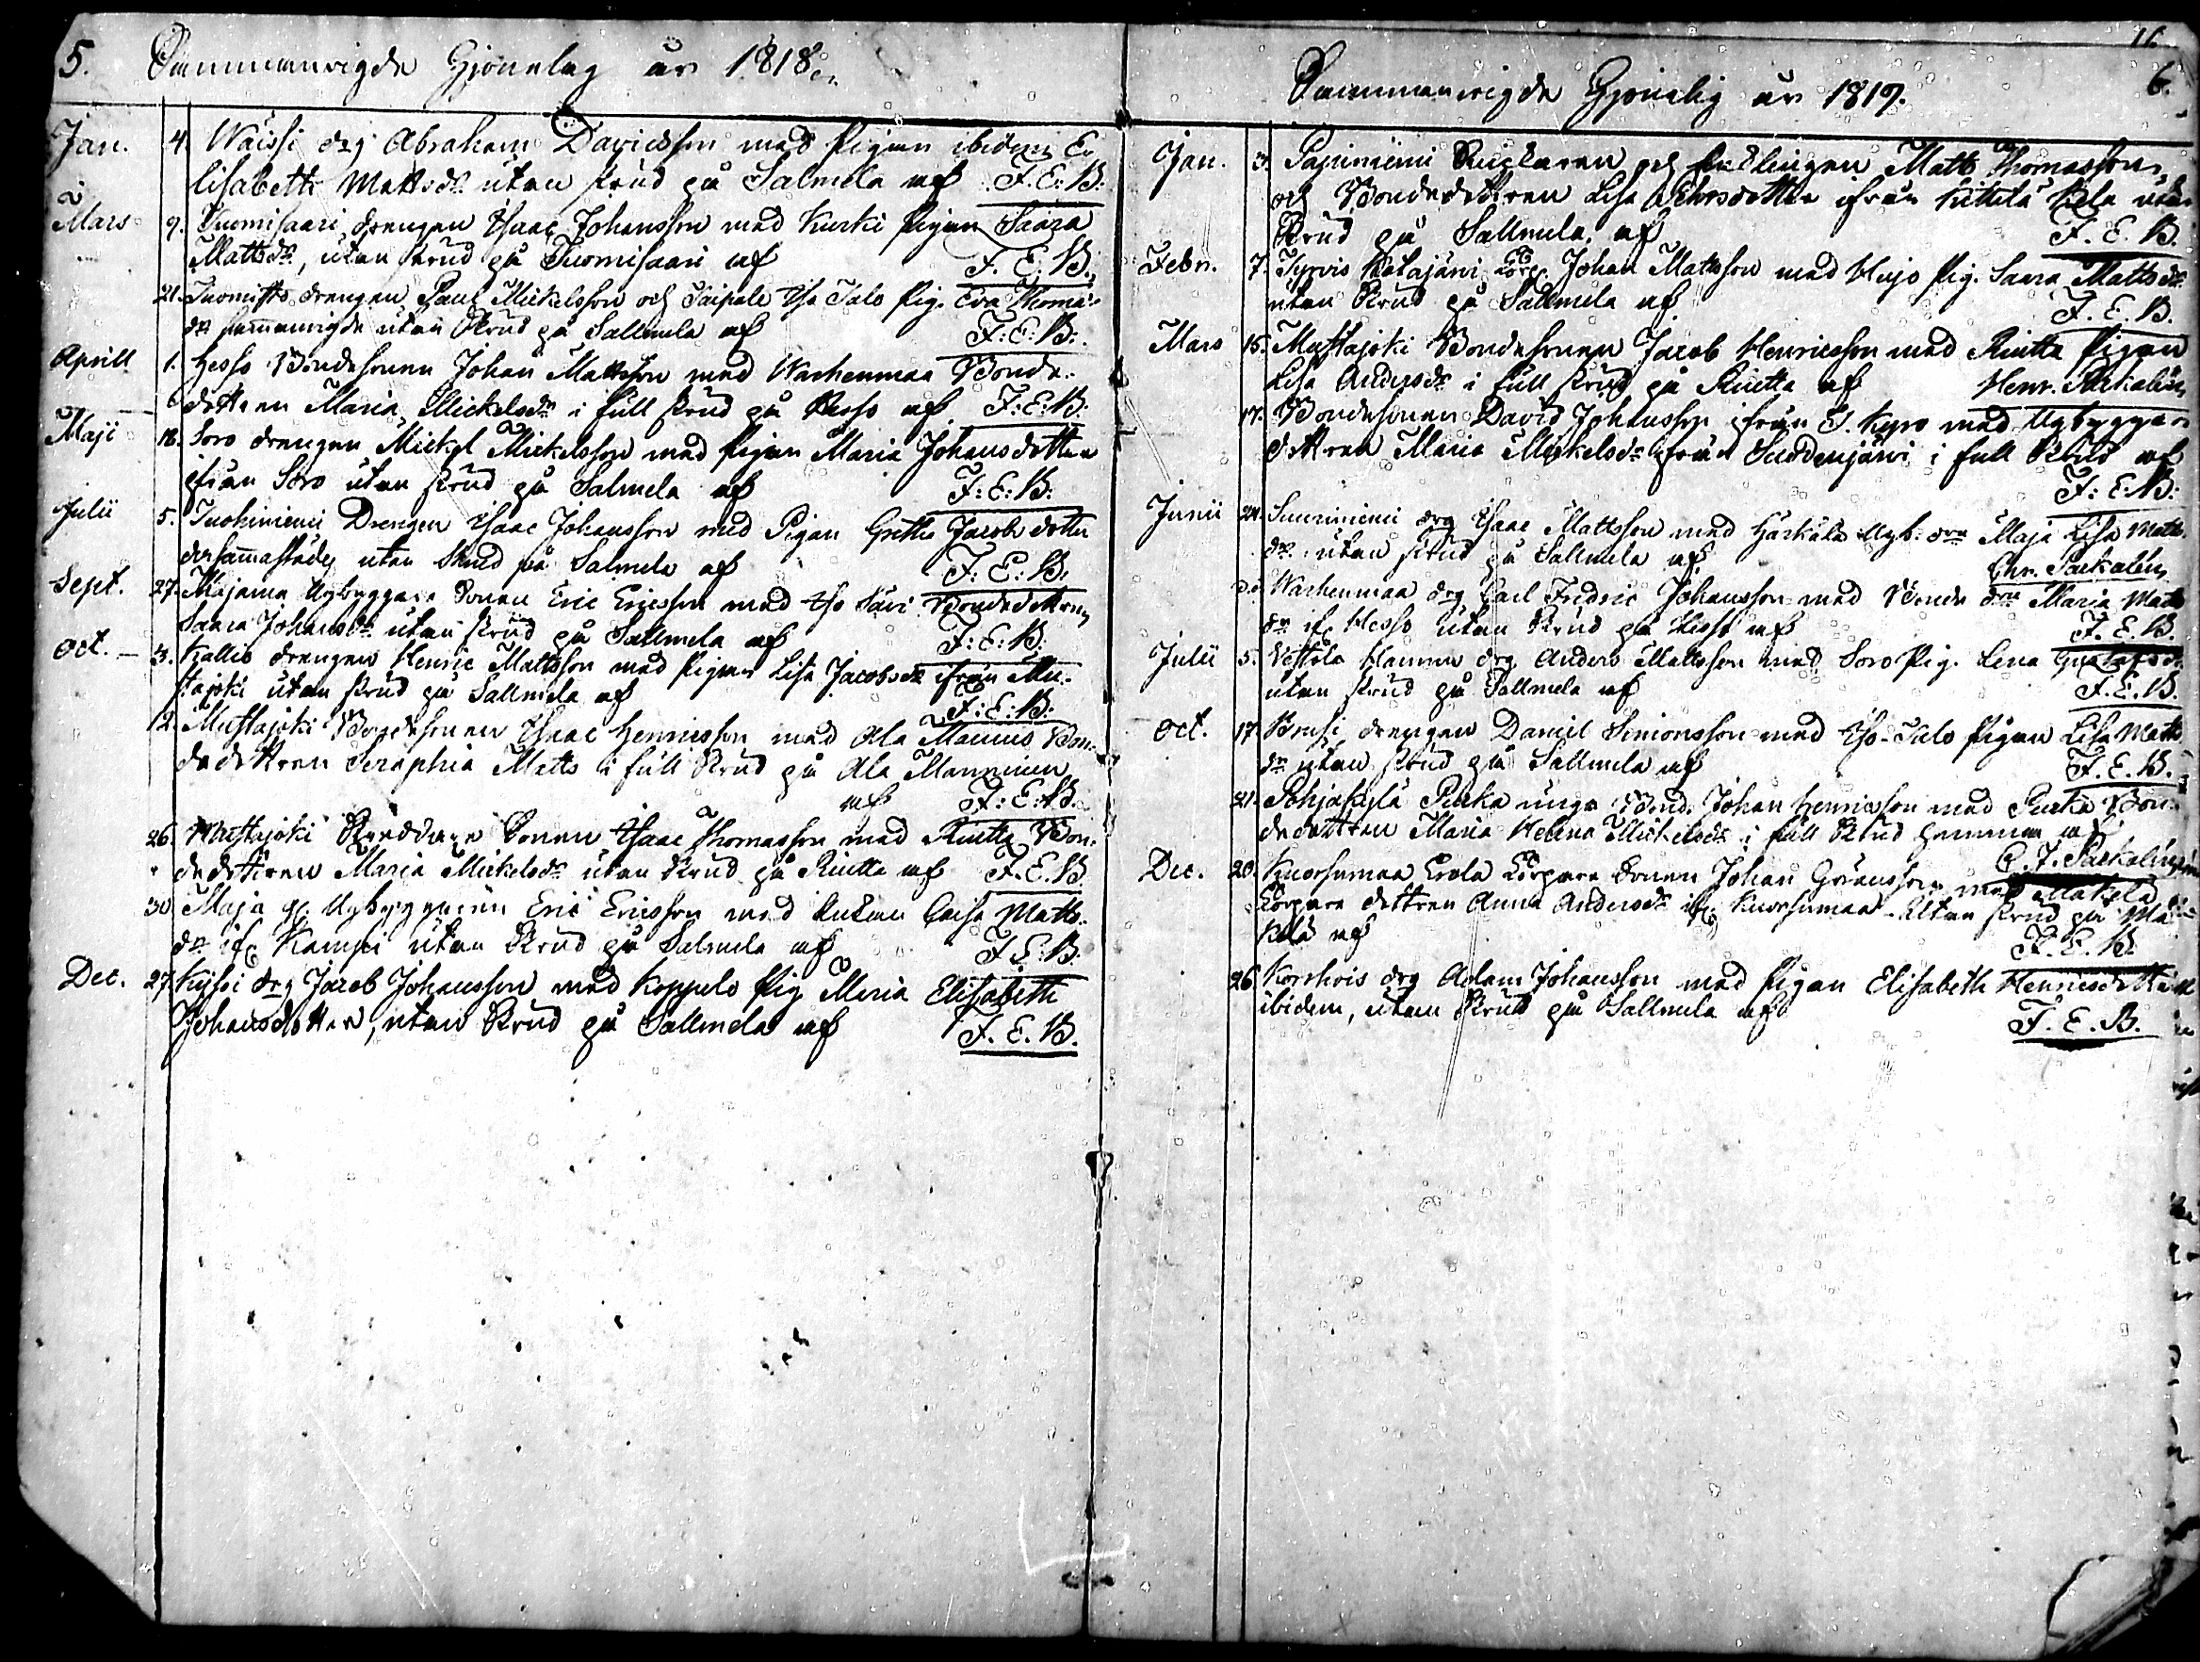 5. Sammanvigde Hjonelag år 1818.
Jan. 4. Waissi drg Abraham Davidsson med Pigan ibidem E-
lisabeth Mattsdr utan skrud på Salmela af F. E. B.
Mars 9. Tuomisaari drengen Isaac Johansson med Kurki Pigan Saara
Mattsdr, utan skrud på Tuomisaari af F. E. B.
21. drengen Paul Mickelsson och Taipale Iso Talo Pig. Eva Thoma-
dr sammanvigde utan Skrud på Sallmela af F: E: B:
Aprill 1. Hesso Bondesonen Johan Mattsson med Warhenmaa Bonde-
dottren Maria Mickelsdr i full skrud på Hesso af F: E: B:
Maji 18. Soro drengen Mickel Mickelsson med Pigan Maria Johansdotter
ifrån Soro utan skrud på Salmela af F: E: B:
Julii 5. Tuohiniemi Drengen Isaac Johansson med Pigan Gretha Jacobsdotter
dersammastädes utan Skrud på Salmela af F: E: B.
Sept. 27. Majama Nybyggare Sonen Eric Ericsson med Iso Savi Bondedottren
Saara Johansdr utan skrud på Sallmela af F: E: B:
Oct. 3. Kallio drengen Henric Mattsson med Pigan Lisa Jacobsdr ifrån Mu-
stajoki utan skrud på Sallmela af F: E: B:
12. Mustajoki Bondesonen Isaac Henricsson med Ala Mannis Bon-
dedottren Seraphia Matts i full Skrud på Ala Manninen
af F: E: B.
26. Mustajoki Sonen Isaac Thomasson med Ruitta Bon-
dedottren Maria Mickelsdr utan Skrud på Ruitta af F. E. B.
30 Maja Nybyggaren Eric Ericsson med Enkan Caisa Matts-
dr if. Kamsa utan Skrud på Salmela af F. E. B.
Dec. 27. Kyhsi drg Jacob Johansson med Koppelo Pig. Maria Elisabeth
Johansdotter, utan Skrud på Sallmela af F. E. B.
11.
Sammanvigde Hjonelag år 1819. 6.
Jan. 3. Pajuniemi och Enklingen Matts Thomasson
och Bondedottren Lisa Pehrsdotter ifrån Kittilä utan
Skrud på Sallmela af F. E. B.
Febr. 7. Torp. Johan Mattsson med Hujo Pig. Saara Mattsdr
utan Skrud på Sallmela af F. E. B.
Mars 15. Mustajoki Bondesonen Jacob Henricsson med Ruitta Pigan
Lisa Andersdr i full skrud på Ruitta af Henr. Packalén
17. Bondesonen David Johansson ifrån S. Kyro med Nybyggare
dottren Maria Mickelsdr ifrån Suddenjärvi i full Skrud af
F: E: B:
Junii 24. Suuriniemi drg Isaac Mattsson med Härkälä Nyb. drn Maja Lisa Matts-
dr utan skrud på Sallmela af Chr. Packalén
d:o Warhenmaa drg Carl Fredric Johansson med Bonde drn Maria Matts
dr if. Hesso utan Skrud på Hesso af F. E. B.
Julii 5. Vestola Hannu drg Anders Mattsson med Soro Pig. Lena Gustafsdr
utan skrud på Sallmela af F. E. B.
Oct. 17. drengen Daniel Simonsson med Iso-Talo Pigan Lisa Matts
dr utan skrud på Sallmela af F. E. B.
21. Pohjakylä Puska unge Bond. Johan Henricsson med Puska Bon-
dedottren Maria Helena Mickelsdr i full Skrud hemma af
C. F. Packalén
Dec. 20. Kuorsumaa Erola Torpare Sonen Johan Göransson med Mäkelä
Torpare dottren Anna Andersdr if. Kuorsumaa. Utan skrud på Mä-
kelä af F. E. B.
26. Korrhois drg Adam Johansson med Pigan Elisabeth Henricsdotter
ibidem, utan Skrud på Sallmela af
F. E. B.